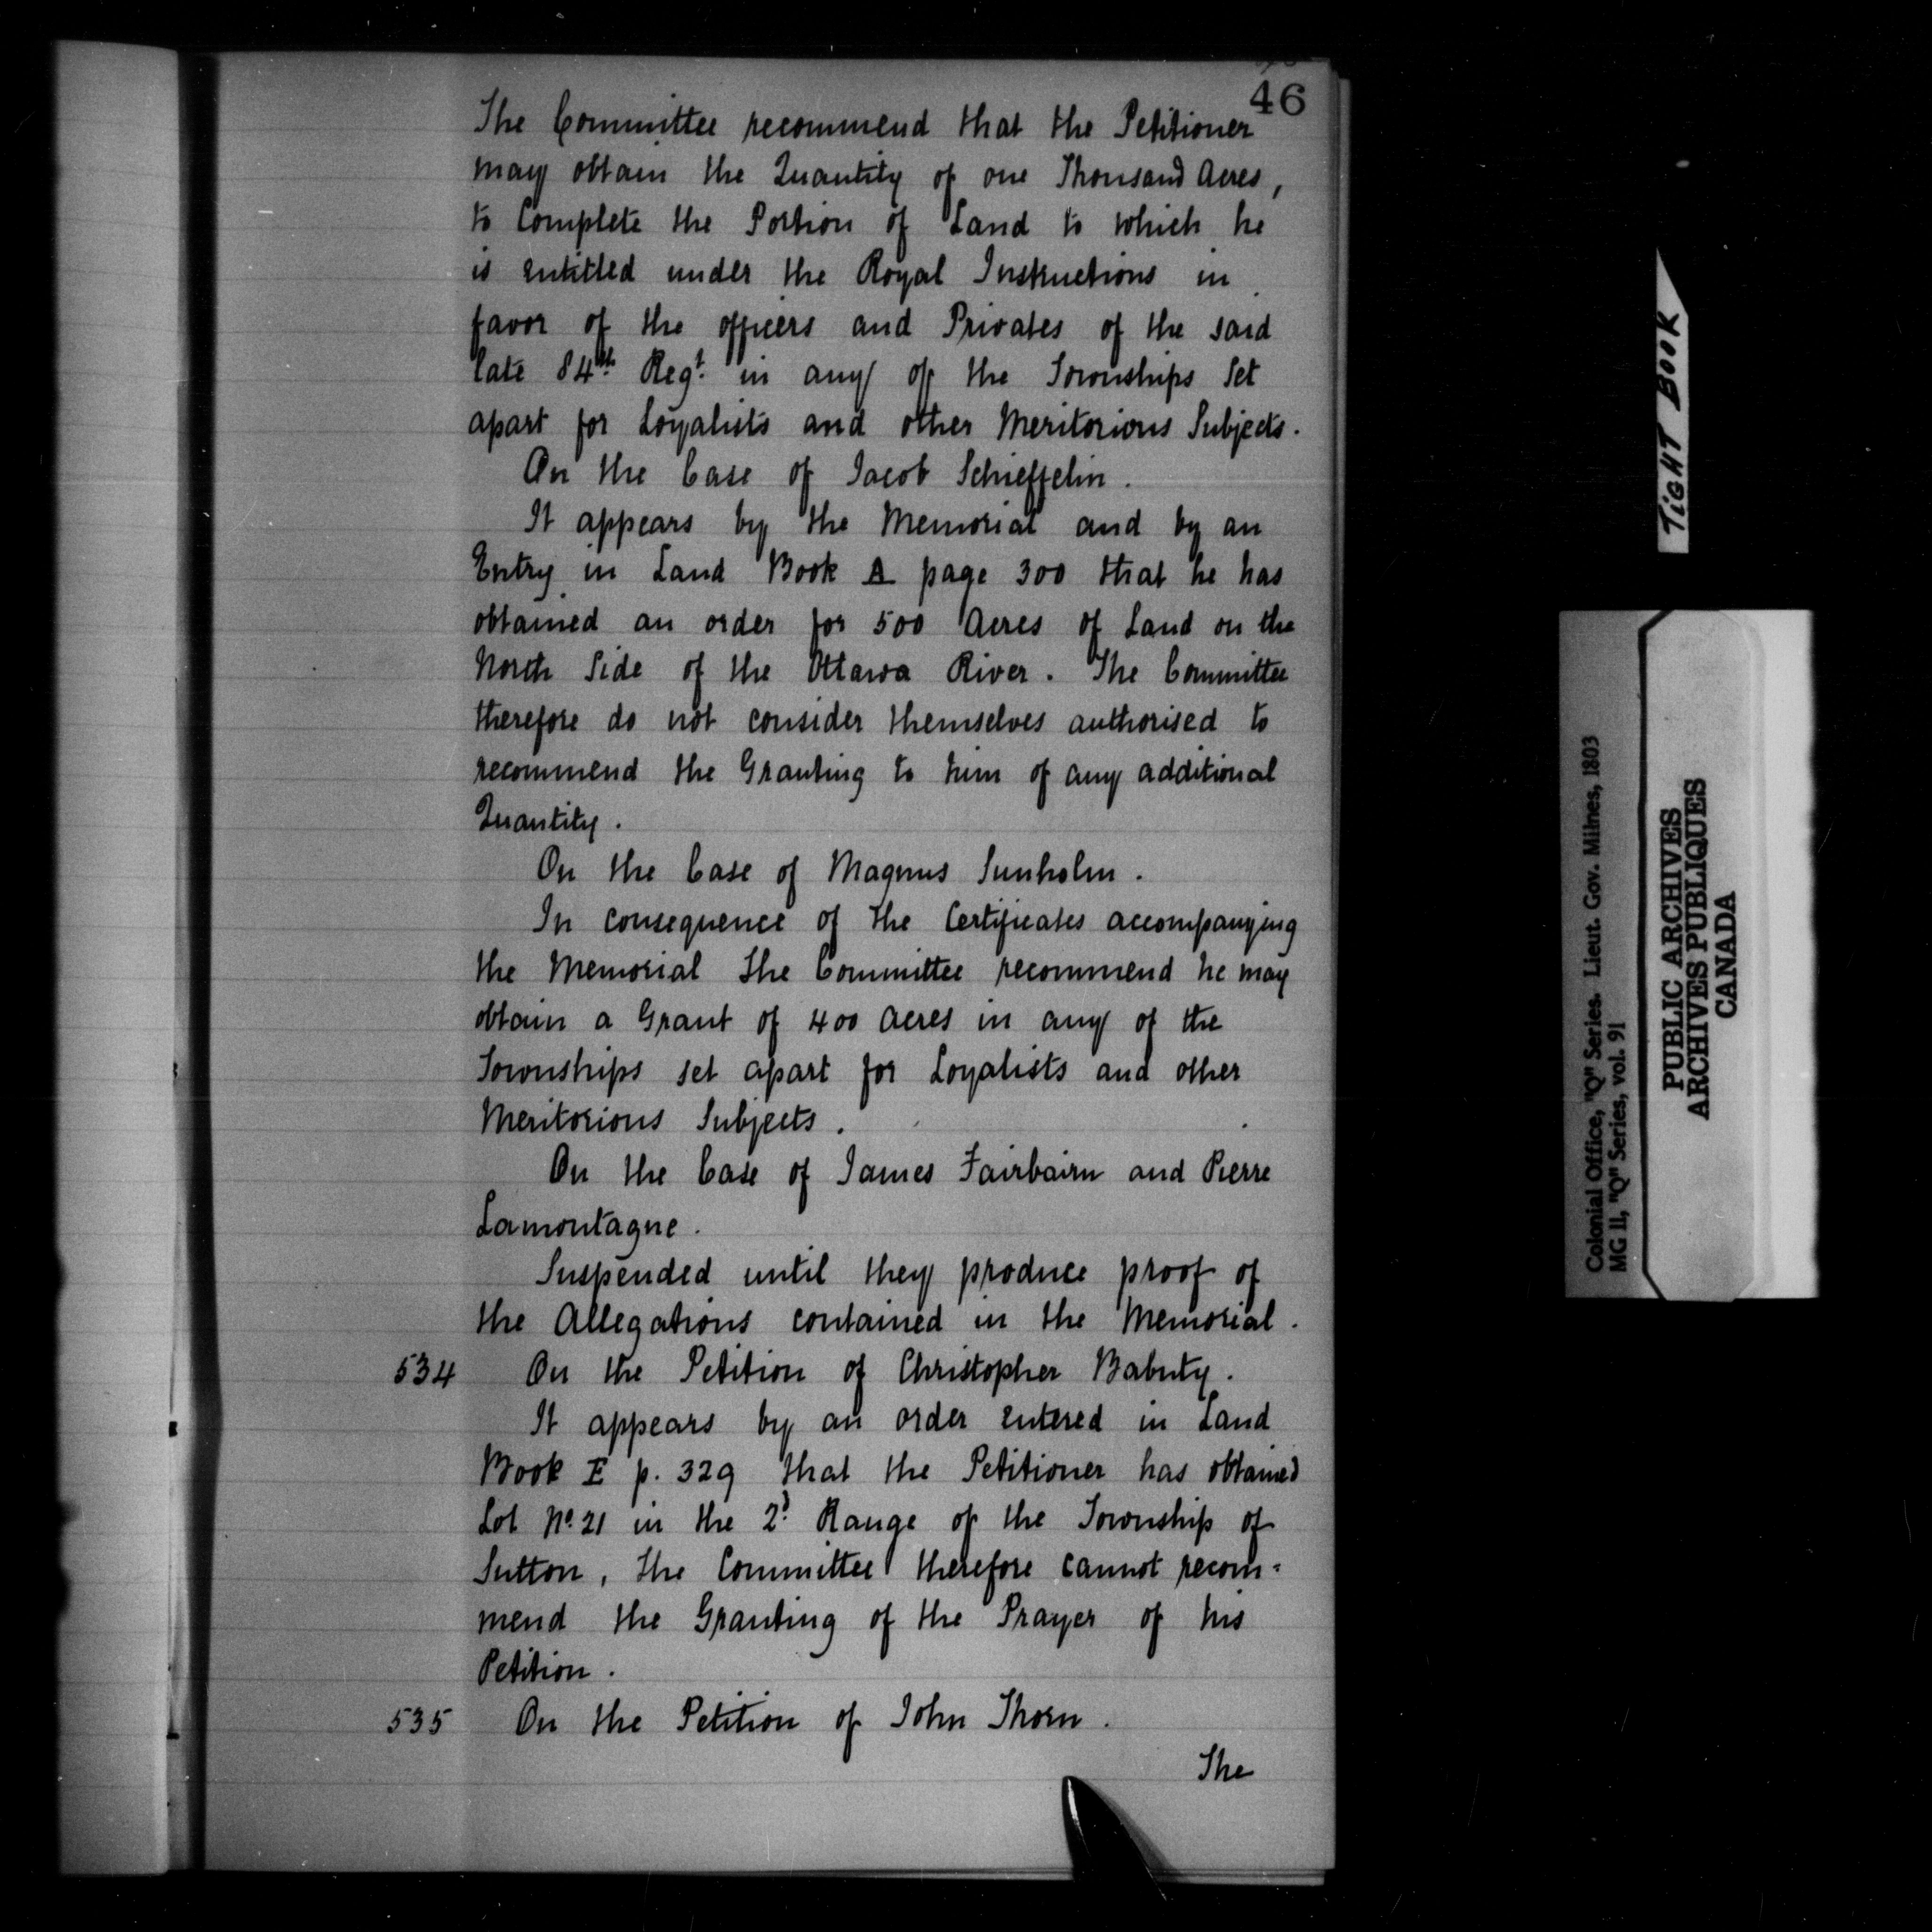 46
The Committee recommend that the Petitioner
may obtain the Quantity of one Thousand Acres,
to Complete the Portion of Land to which he
is entitled under the Royal Instructions in
favor of the officers and Privates of the said
late 84th Regt. in any of the Townships Set
apart for Loyalists and other Meritorious Subjects.
On the Case of Jacob Schieffelin.
It appears by the Memorial and by an
Entry in Land Book A page 300 that he has
obtained an order for 500 Acres of Land on the
North Side of the Ottawa River. The Committee
therefore do not consider themselves authorised to
recommend the Granting to him of any additional
Quantity.
On the Case of Magnus Sunholm.
In consequence of the Certificates accompanying
the Memorial the Committee recommend he may
obtain a Grant of 400 Acres in any of the
Townships set apart for Loyalists and other
Meritorious Subjects.
On the Case of James Fairbairn and Pierre
Lamontagne.
Suspended until they produce proof of
the Allegations contained in the Memorial.
534 On the Petition of Christopher Babuty.
It appears by an order entered in Land
Book E p. 329 that the Petitioner has obtained
Lot No. 21 in the 2d. Range of the Township of
Sutton, the Committee therefore cannot recom=
mend the Granting of the Prayer of his
Petition.
535 On the Petition of John Thorn.
The
TIGHT BOOK
Colonial Office, "Q" Series. Lieut. Gov. Milnes, 1803
MG 11, "Q" Series, vol. 91
PUBLIC ARCHIVES
ARCHIVES PUBLIQUES
CANADA